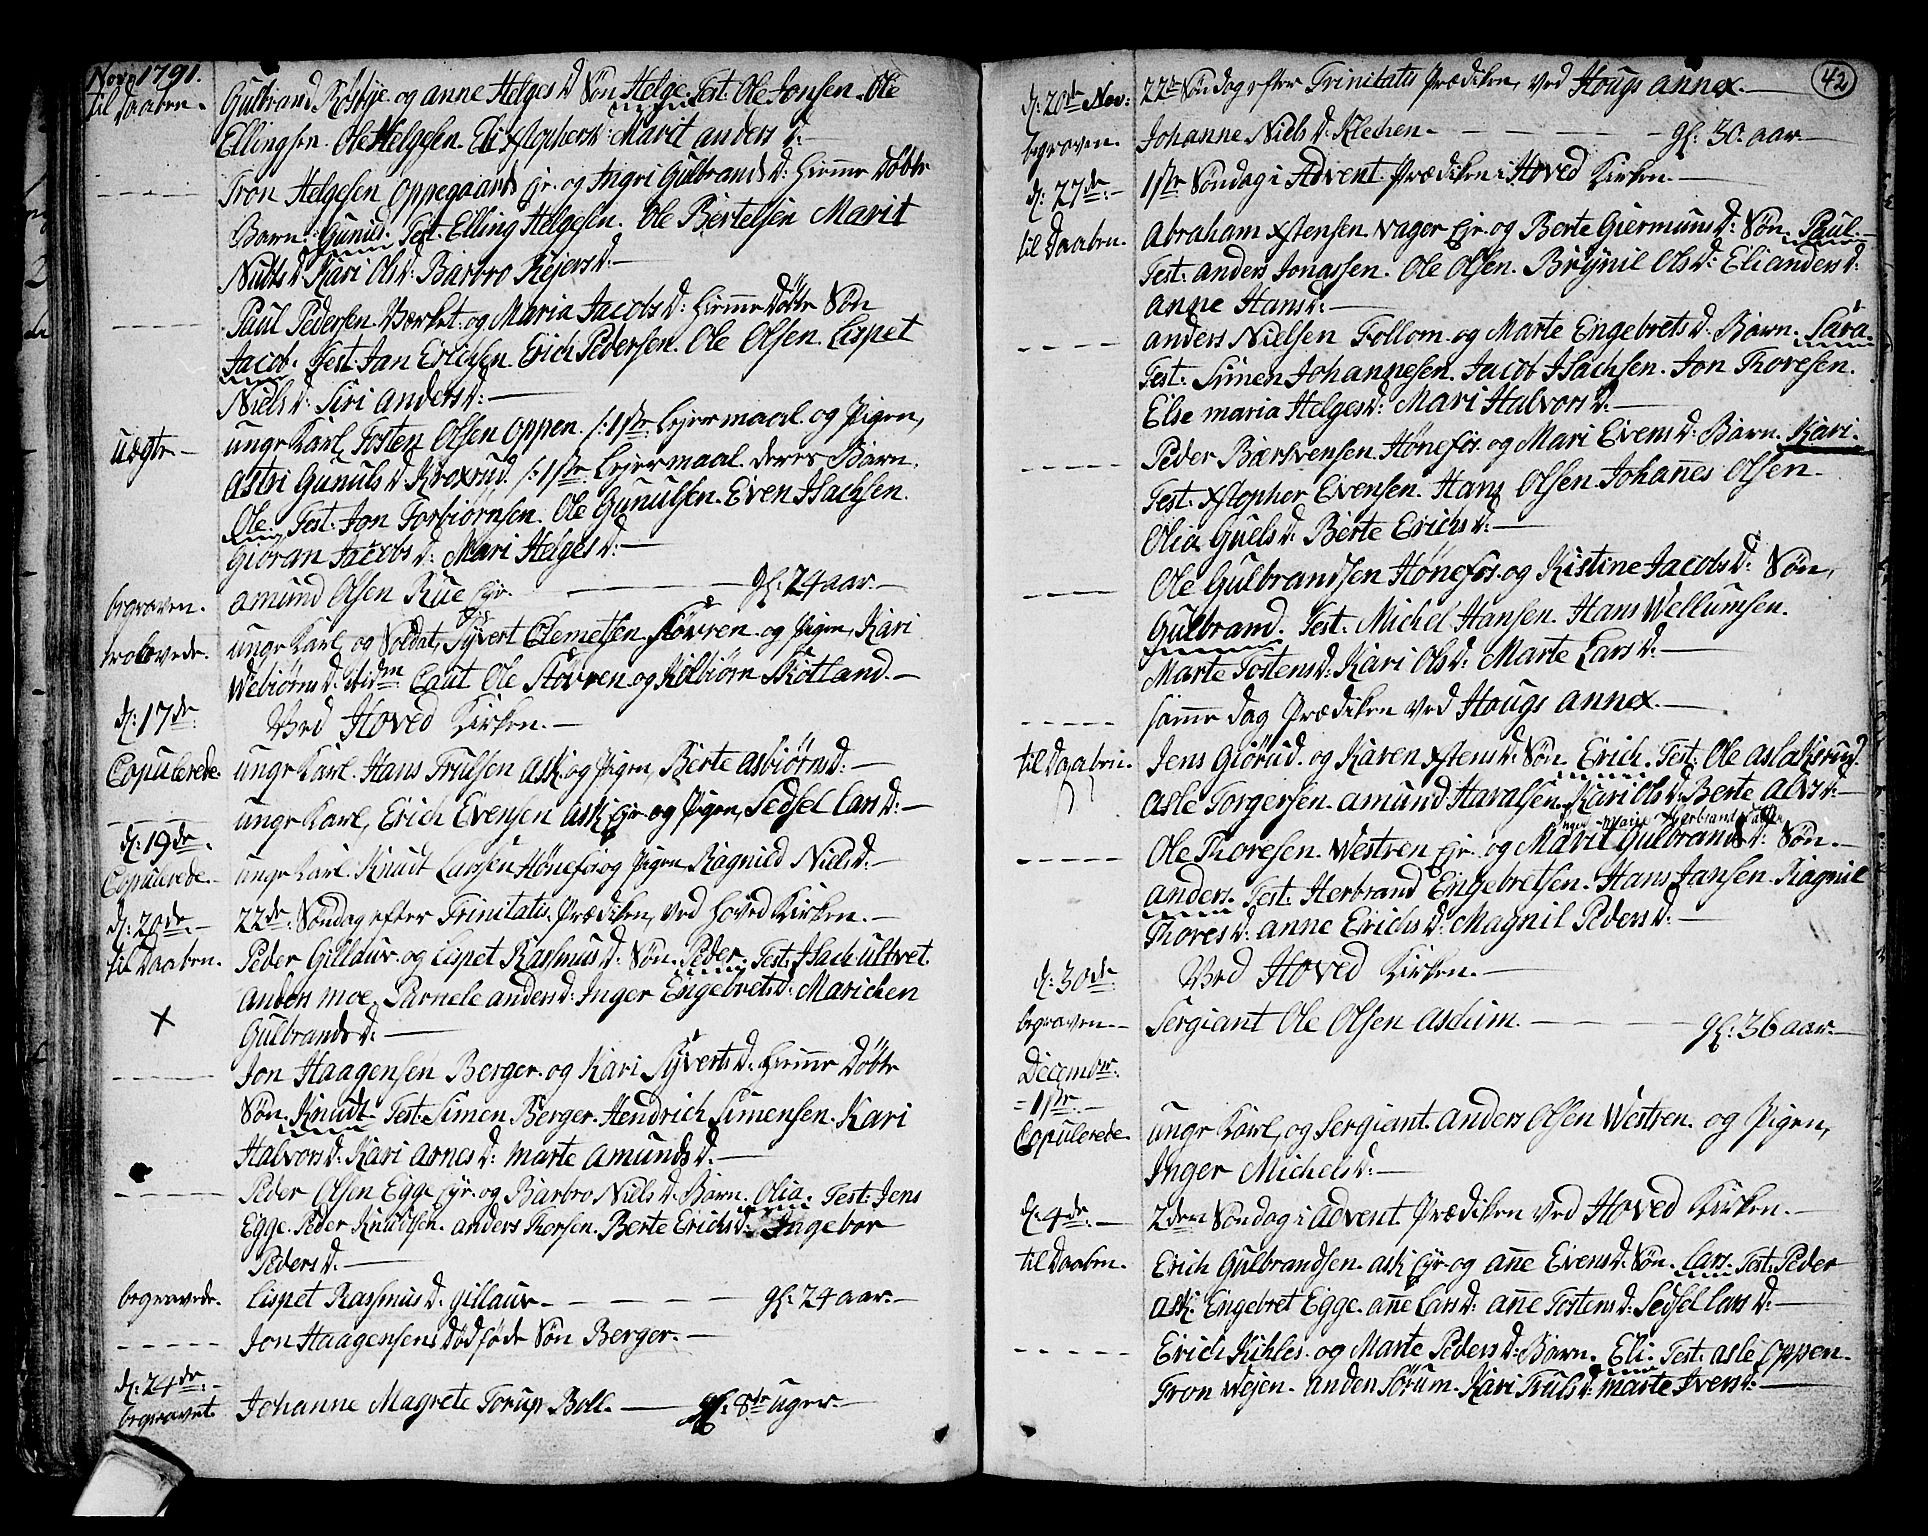 Nov: 1791.
til Daaben. Gulbrand Kølkje og anne Helges D. Søn Helge. Test: Ole Jonsen. Ole
Ellingsen. Ole Helgesen. Eli Xstophers D: Marit anders D:
Tron Helgesen oppegaards Ejr. og Ingri Gulbrands D: hieme Døbte
Barn. Gunild. Test. Elling Helgesen. Ole Bertelsen Marit
Niels D. Kari Ols D: Barbro Rejers D.
Paul Pedersen Værket og Maria Jacobs D: hieme Døbte Søn
Jacob. Test. Jan Erichsen. Erich Pedersen. Ole Olsen. Lispet
Niels D. Siri anders D:
uægte ungr Karl, Tosten Olsen oppen /:1ste Lejermaal og Pigen,
astri Gunuls D. Kroxrud /:1ste Lejermaal. deres Barn.
Ole. Test. Jon Torbiørnsen. Ole Gunulsen. Even Isachsen.
Giøran Jacobs D: Mari Helges D:
begraven. amund Olsen Rue Ejr. gl: 24 aar.
trolovede. ungr Karl og Soldat, Syvert Clemetsen Støvren og Pigen, Kari
Webiørns D. Caut Ole Støvren og Kolbiørn Skotland.
d: 17de Ved Hoved Kirken.
Copulerede. ungr Karl. Hans Trulsen ask og Pigen, Berte asbiørns D:
ungr Karl, Erich Evensen ask Ejr og Pigen, Sedsel Lars D:
d: 19de
Copulerede. ungr Karl. Knud Larsen Hønefos og Pigen Ragnild Niels D.
d: 20de 22de Søndag efter Trinitatis. Prædiken, ved Hoved Kirken.
til Daaben. Peder Gillaur og Lispet Rasmus D. Søn. Peder. Test: Isach ultvet
Anders moe. Parnele anders D: Inger Engebrets D: Marichen
X Gulbrands D:
Jon Haagensen Berger og Kari Syverts D. hieme Døbte
Søn. Knud. Test: Simen Berger. Hendrich Simensen. Kari
Halvors D: Kari arnes D: marte amunds D:
Peder Olsen Egge Ejr. og Barbro Niels D. Barn. Olia. Test: Jens
Egge. Peder Knudsen. anders Thorsen. Berte Erichs D: Ingebor
Peders D.
begravede. Lispet Rasmus D. gillaur gl: 24 aar.
Jon Haagensens Dødføde Søn Berger.
d: 24de
begravet. Johanne Magrete Torup Boll. gl: 8te uger.
42
d: 20de Nov: 22de Søndag efter Trinitatis Prædiken, ved Hougs annex.
begraven. Johanne Niels D. Klechen. gl: 30. aar.
d: 27de 1ste Søndag i Advent. Prædiken i Hoved Kirken.
til Daaben. Abraham Xstensen vager Ejr. og Berte Giermunds D: Søn. Paul.
Test: anders Jonassen. Ole Olsen. Brynil Ols D: Eli anders D:
anne Hans D:
anders Nielsen Follom og Marte Engebrets D. Barn. Sara.
Test: Simen Johannesen. Jacob Isachsen. Jon Thoresen.
Else maria Helges D: Mari Halvors D.
Peder Bærsvensen Hønefos og Mari Evens D: Barn. Kari.
Test. Xstopher Evensen. Hans Olsen. Johanes Olsen.
Olia Guels D. Berte Erichs D:
Ole Gulbrandsen Hønefos. og Kistine Jacobs D: Søn,
Gulbrand. Test. Michel Hansen. Hans Wellumsen.
Marte Tostens D: Kari Ols D: Marte Lars D:
samme dag Prædiken ved Hougs annex.
til Daaben. Jens Giørud. og Karen Xstens D: Søn. Erich. Test: Ole aslaksrud.
asle Torgersen. amund Haralsen. Kari Ols D. Berte alvs D:
Ole Thoresen. Westren Ejr. og Marit Gulbrands D: Søn.
anders. Test. Herbrand Engebretsen. Hans Jansen. Ragnil
Thores D. anne Erichs D. Magnil Peders D:
d: 30de Ved Hoved Kirken.
begraven. Sergiant Ole Olsen aschim. gl: 36 aar.
December
1ste
Copulerede. ungr Karl, og Sergiant. anders Olsen Westren. og Pigen,
Inger Michels D:
d: 4de 2den Søndag i Advent. Prædiken ved Hoved Kirken.
til Daaben. Erich Gulbrandsen. ask Ejr og ane Evens D: Søn. Lars. Test: Peder
ask. Engebret Egge. ane Lars D: ane Tostens D: Sedsel Lars D:
Erich Kihles. og Marte Peders D: Barn. Eli. Test: asle oppen.
Tron Wejen. anders Sørum. Kari Truls D: marte Ivers D: